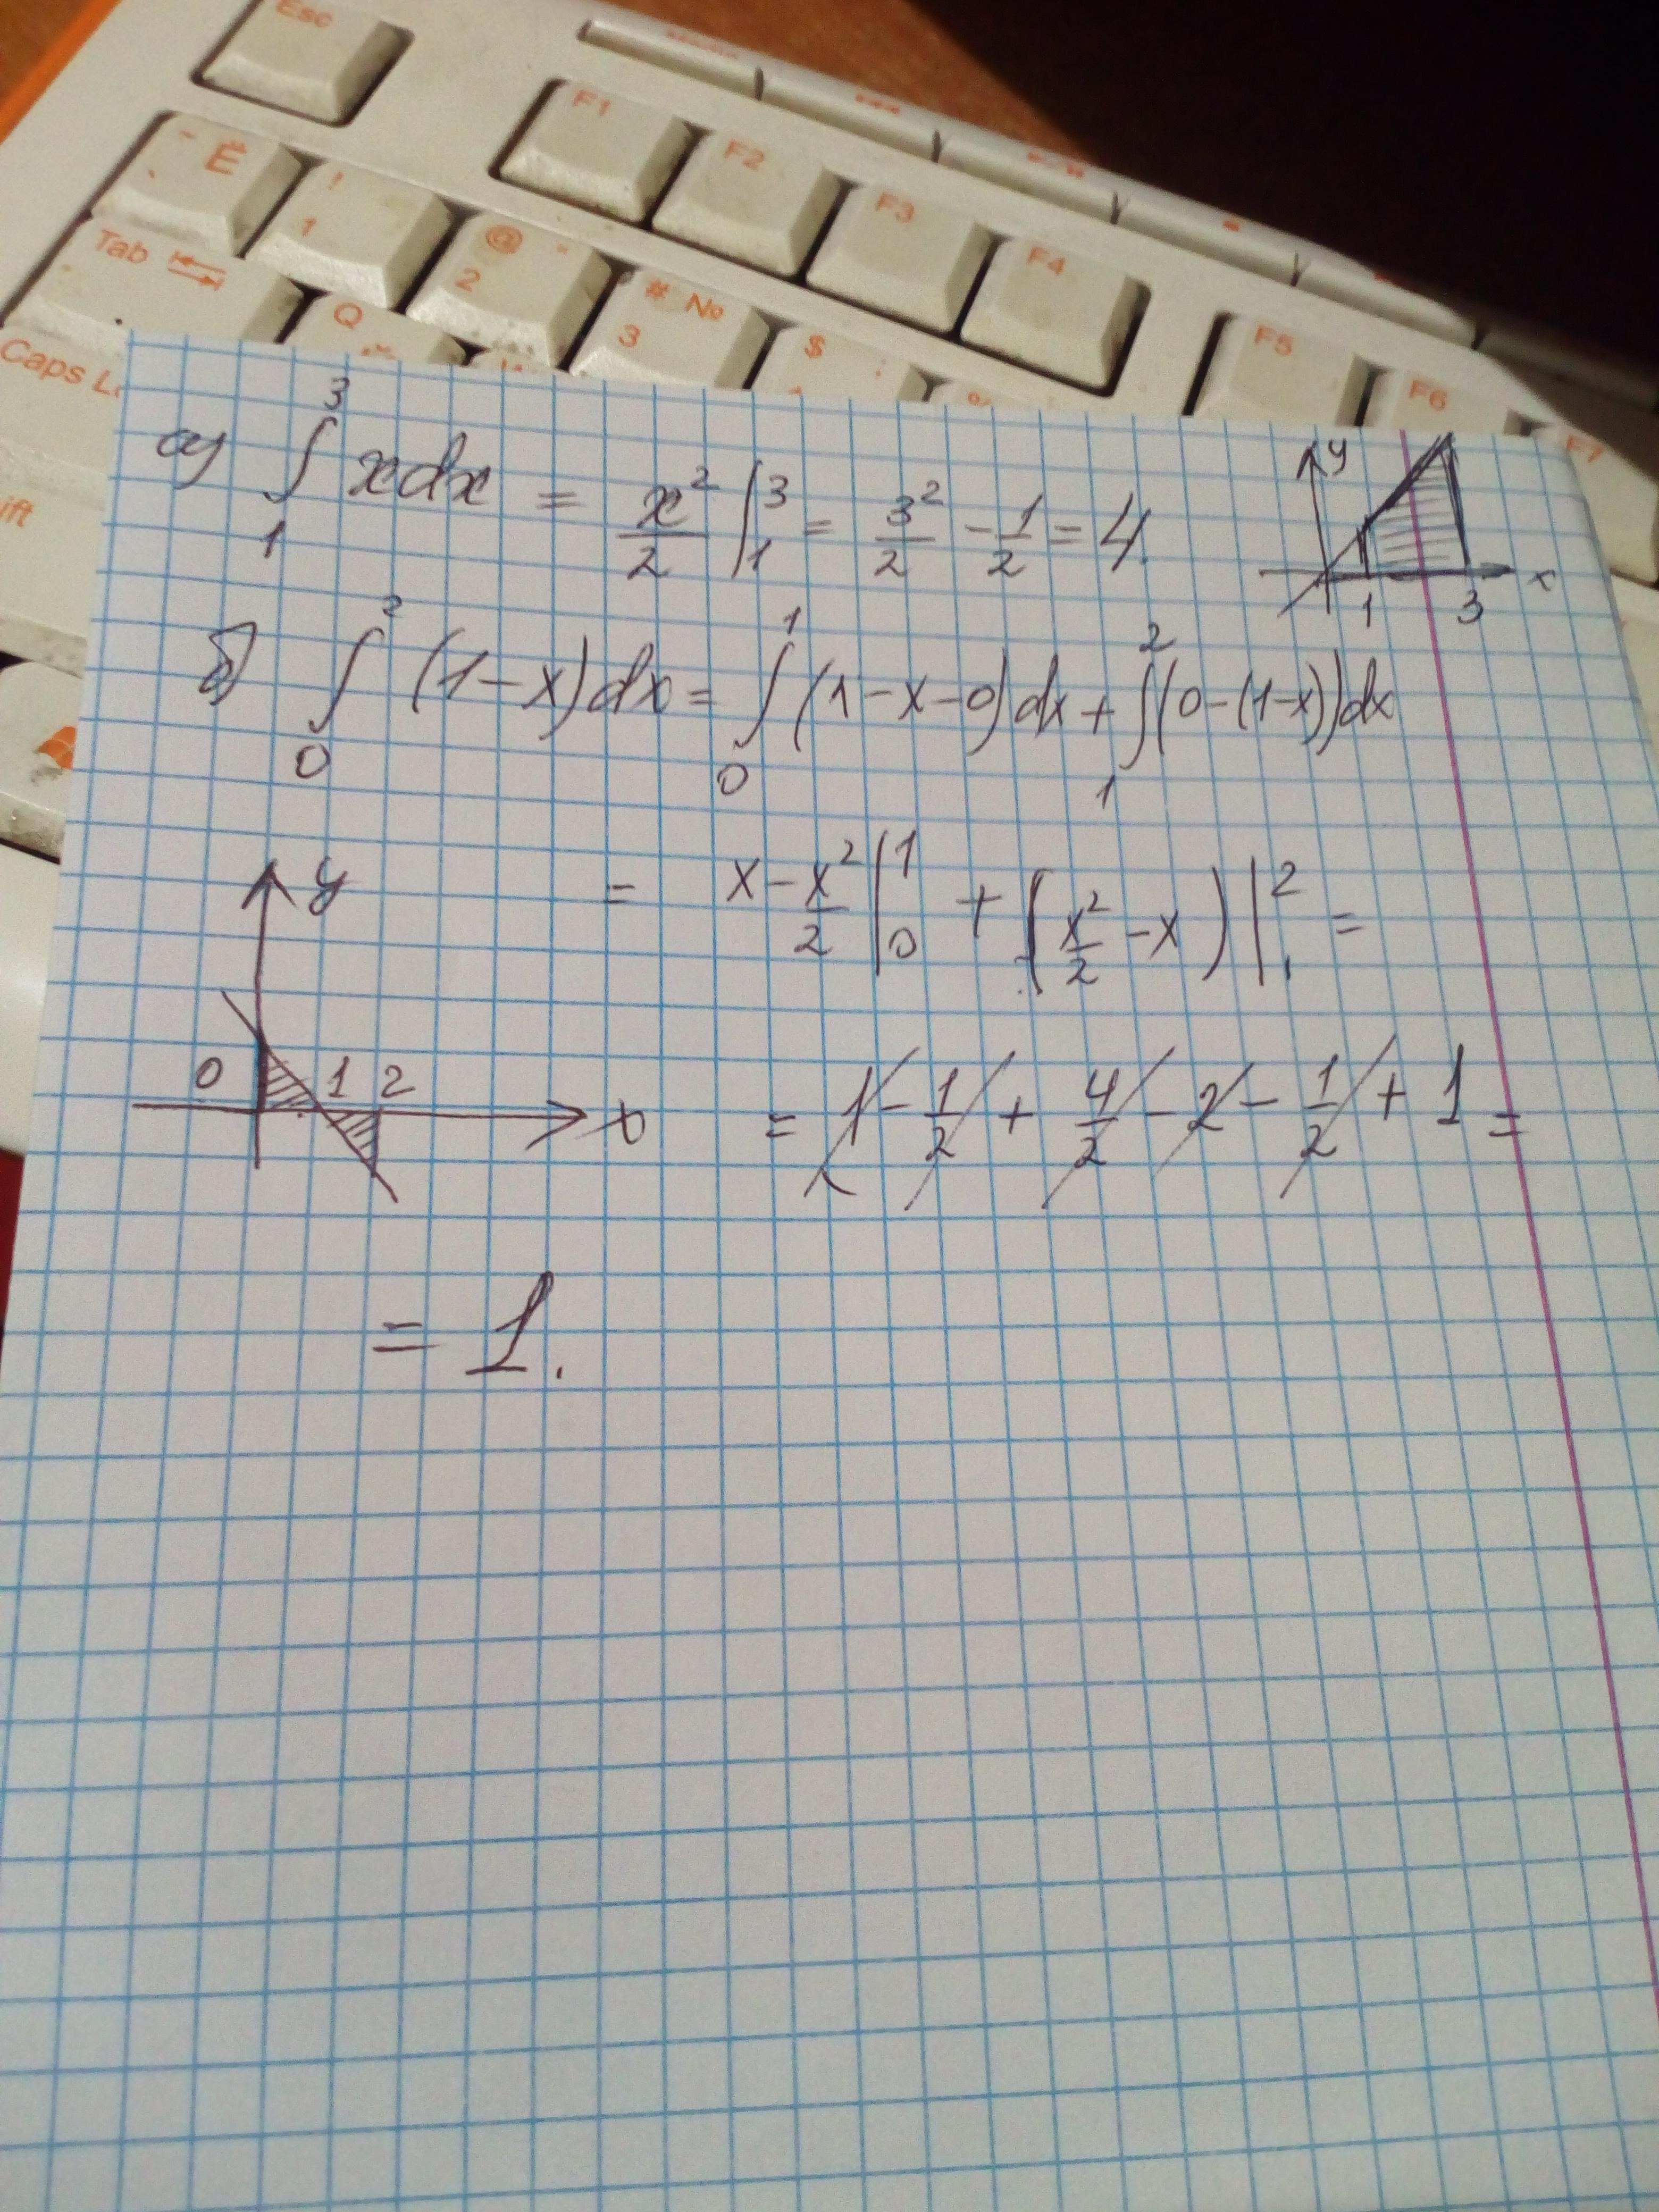 Esc
F1 F2 F3 F4 F5 F6 F7
~ Ё ! 1 @ " 2 # № 3 $ ; %
Tab Q
Caps L
ift
а) ∫₁³ xdx = x²/2 |₁³ = 3²/2 - 1/2 = 4.
y x 1 3
б) ∫₀² (1-x)dx = ∫₀¹ (1-x-0)dx + ∫₁² (0-(1-x))dx
= x - x²/2 |₀¹ + (x²/2 - x)|₁² =
y 0 1 2 x
= 1 - 1/2 + 4/2 - 2 - 1/2 + 1 =
= 1.